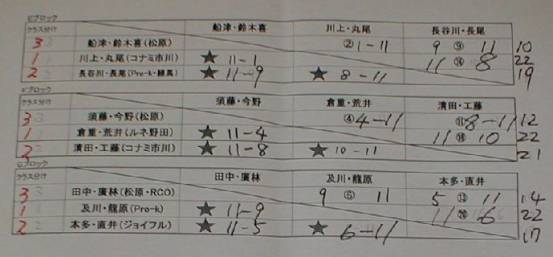 Eブロック
クラス分け 船津・鈴木喜 川上・丸尾 長谷川・長尾
3 船津・鈴木喜(松原) ② 1-11 9 ⑨ 11 10
1 川上・丸尾(コナミ市川) ★ 11-1 11 ⑭ 8 22
2 長谷川・長尾(Pro-k・練馬) ★ 11-9 ★ 8-11 19
Fブロック
クラス分け 須藤・今野 倉重・荒井 濱田・工藤
3 須藤・今野(松原) ④ 4-11 ⑪ 8-11 12
1 倉重・荒井(ルネ野田) ★ 11-4 11 10 22
2 濱田・工藤(コナミ市川) ★ 11-8 ★ 10-11 21
Gブロック
クラス分け 田中・廣林 及川・龍原 本多・直井
3 田中・廣林(松原・RCO) 9 11 5 11 14
1 及川・龍原(Pro-k) ★ 11-9 11 6 22
2 本多・直井(ジョイフル) ★ 11-5 ★ 6-11 17